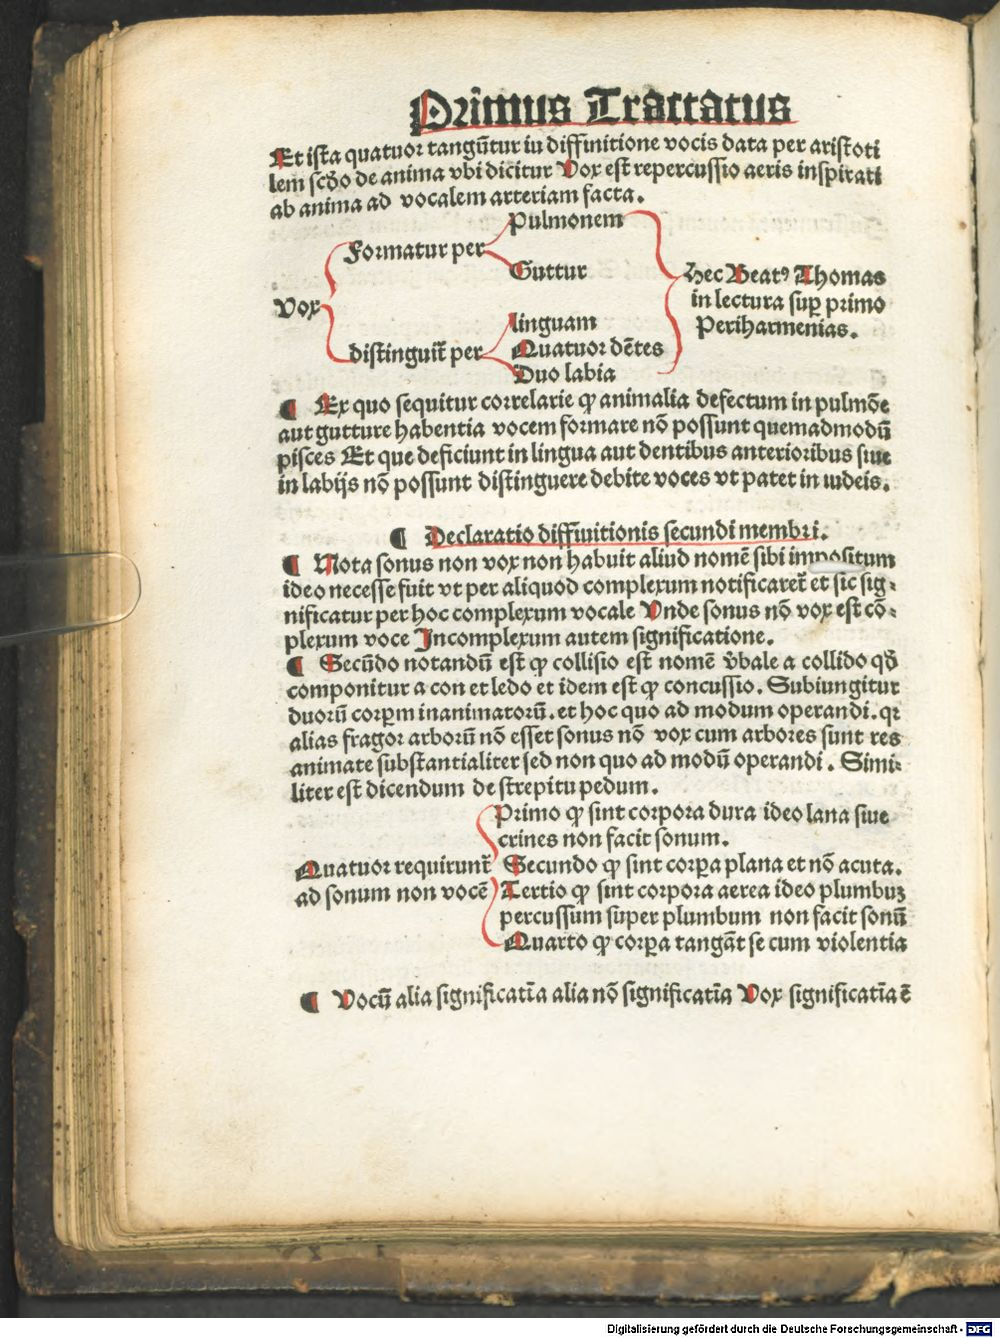 Primus Tractatus
Et ista quatuor tangūtur in diffinitione vocis data per aristoti
lem scḋo de anima vbi dicitur Vox est repercussio aeris inspirati
ab anima ad vocalem arteriam facta.
Vox
Formatur per
Pulmonem
Guttur
distinguit̄ per
linguam
Quatuor dētes
Duo labia
Hec Beatꝰ Thomas
in lectura suꝑ primo
Periharmenias.
¶ Ex quo sequitur correlarie ꝙ animalia defectum in pulmōe
aut gutture habentia vocem formare nō possunt quemadmodū
pisces Et que deficiunt in lingua aut dentibus anterioribus siue
in labijs nō possunt distinguere debite voces vt patet in iudeis.
¶ Declaratio diffinitionis secundi membri.
¶ Nota sonus non vox non habuit aliud nomē sibi impositum
ideo necesse fuit vt per aliquod complexum notificaret̄ et sic sig⸗
nificatur per hoc complexum vocale Vnde sonus nō vox est cō⸗
plexum voce Incomplexum autem significatione.
¶ Secūdo notandū est ꝙ collisio est nomē v̄bale a collido qḋ
componitur a con et ledo et idem est ꝙ concussio. Subiungitur
duorū corꝑm inanimatorū. et hoc quo ad modum operandi. qꝛ
alias fragor arborū nō esset sonus nō vox cum arbores sunt res
animate substantialiter sed non quo ad modū operandi. Simi⸗
liter est dicendum de strepitu pedum.
Quatuor requirunt̄
ad sonum non vocē
Primo ꝙ sint corpora dura ideo lana siue
crines non facit sonum.
Secundo ꝙ sint corꝑa plana et nō acuta.
Tertio ꝙ sint corpora aerea ideo plumbuꝫ
percussum super plumbum non facit sonū
Quarto ꝙ corꝑa tangāt se cum violentia
¶ Vocū alia significatīa alia nō significatīa Vox significatīa ē
Digitalisierung gefördert durch die Deutsche Forschungsgemeinschaft - DFG